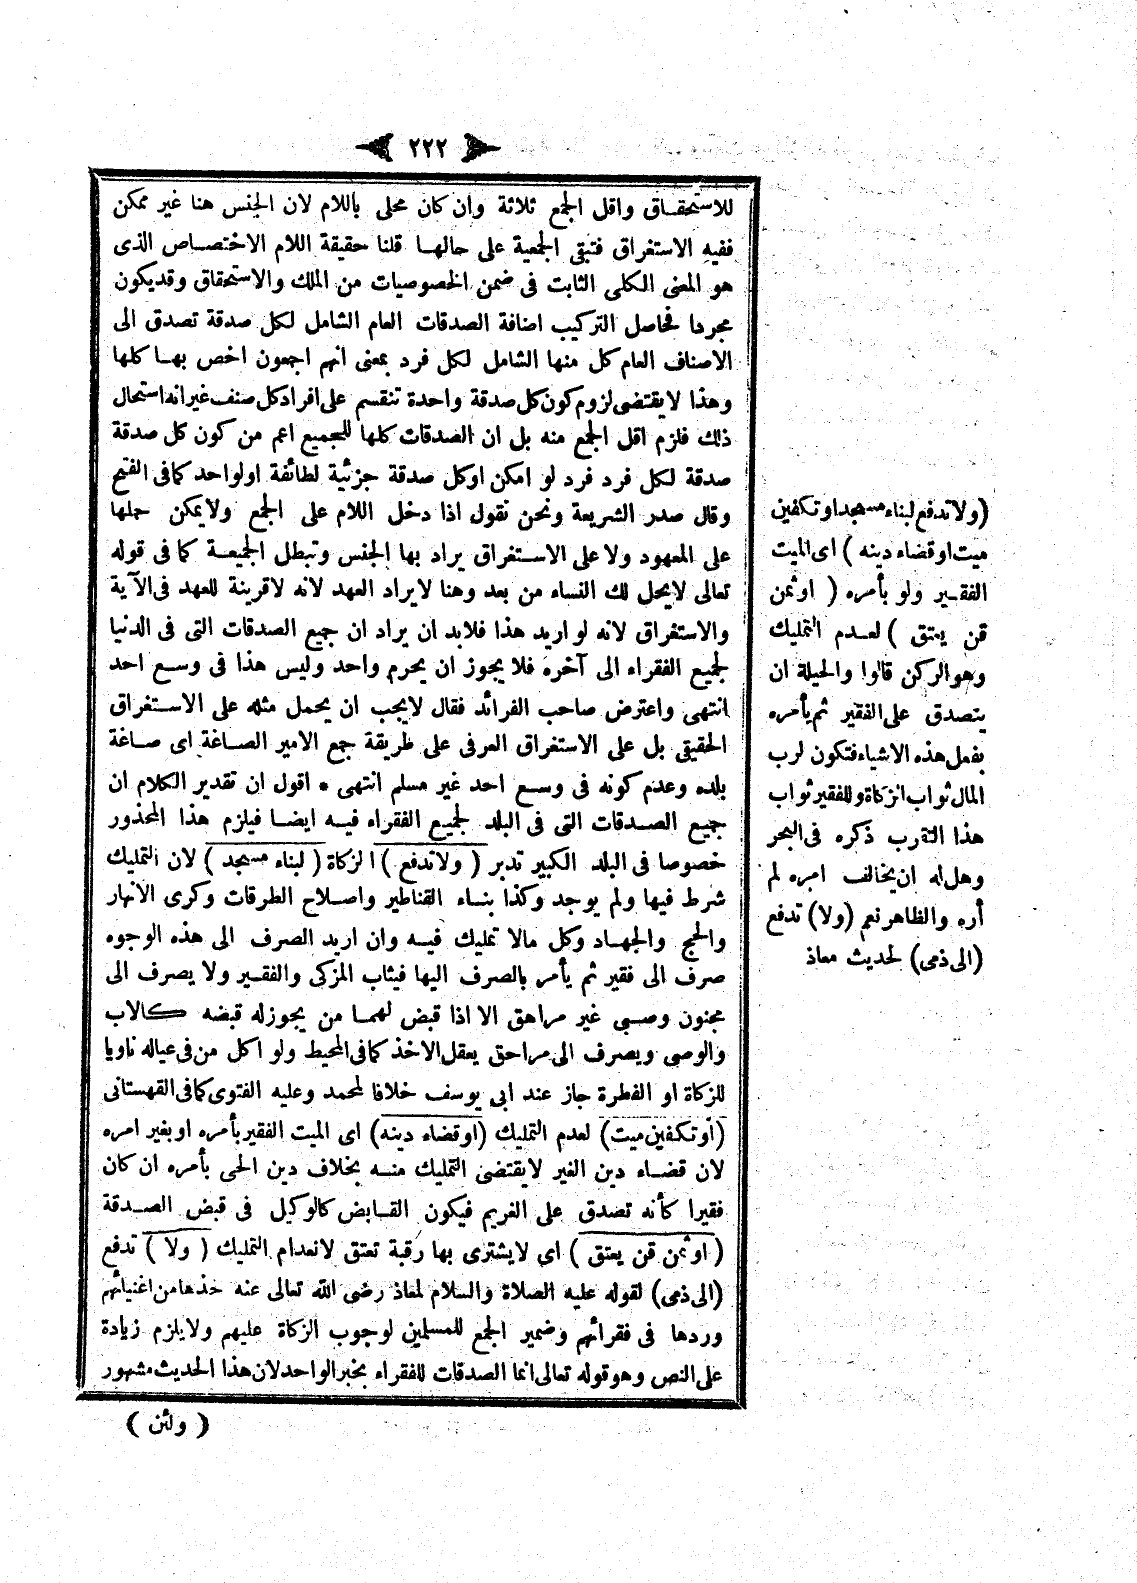 ۲۲۲
للاستحقاق واقل الجمع ثلاثة وان كان محلى باللام لان الجنس هنا غير ممكن
ففيه الاستغراق فتبقى الجمعية على حالها قلنا حقيقة اللام الاختصاص الذى
هو المعنى الكلى الثابت فى ضمن الخصوصيات من الملك والاستحقاق وقديكون
مجردا فحاصل التركيب اضافة الصدقات العام الشامل لكل صدقة تصدق الى
الاصناف العام كل منها الشامل لكل فرد بمعنى انهم اجمعون اخص بها كلها
وهذا لايقتضى لزوم كون كل صدقة واحدة تنقسم على افراد كل صنف غيرانه استحال
ذلك فلزم اقل الجمع منه بل ان الصدقات كلها للجميع اعم من كون كل صدقة
صدقة لكل فرد فرد لو امكن اوكل صدقة جزئية لطائفة اولواحد كمافى الفتح
وقال صدر الشريعة ونحن نقول اذا دخل اللام على الجمع ولايمكن حملها
على المعهود ولا على الاستغراق يراد بها الجنس وتبطل الجمعية كما فى قوله
تعالى لايحل لك النساء من بعد وهنا لايراد العهد لانه لاقرينة للعهد فى الآية
والاستغراق لانه لو اريد هذا فلابد ان يراد ان جميع الصدقات التى فى الدنيا
لجميع الفقراء الى آخره فلا يجوز ان يحرم واحد وليس هذا فى وسع احد
انتهى واعترض صاحب الفرائد فقال لايجب ان يحمل مثله على الاستغراق
الحقيقى بل على الاستغراق العرفى على طريقة جمع الامير الصاغة اى صاغة
بلده وعدم كونه فى وسع احد غير مسلم انتهى • اقول ان تقدير الكلام ان
جميع الصدقات التى فى البلد لجميع الفقراء فيه ايضا فيلزم هذا المحذور
خصوصا فى البلد الكبير تدبر ( ولاتدفع ) الزكاة ( لبناء مسجد ) لان التمليك
شرط فيها ولم يوجد وكذا بناء القناطير واصلاح الطرقات وكرى الانهار
والحج والجهاد وكل مالا تمليك فيه وان اريد الصرف الى هذه الوجوه
صرف الى فقير ثم يأمر بالصرف اليها فيثاب المزكى والفقير ولا يصرف الى
مجنون وصبى غير مراهق الا اذا قبض لهما من يجوزله قبضه كالاب
والوصى ويصرف الى مراحق يعقل الاخذ كمافى المحيط ولو اكل من فى عياله ناويا
للزكاة او الفطرة جاز عند ابى يوسف خلافا لمحمد وعليه الفتوى كمافى القهستانى
(اوتكفين ميت) لعدم التمليك (اوقضاء دينه) اى الميت الفقير بأمره اوبغير امره
لان قضاء دين الغير لايقتضى التمليك منه بخلاف دين الحى بأمره ان كان
فقيرا كأنه تصدق على الغريم فيكون القابض كالوكيل فى قبض الصدقة
( اوثمن قن يعتق ) اى لايشترى بها رقبة تعتق لانعدام التمليك ( ولا ) تدفع
(الى ذمى) لقوله عليه الصلاة والسلام لمعاذ رضى الله تعالى عنه خذها من اغنيائهم
وردها فى فقرائهم وضمير الجمع للمسلمين لوجوب الزكاة عليهم ولايلزم زيادة
على النص وهوقوله تعالى انما الصدقات للفقراء بخبرالواحد لان هذا الحديث مشهور
( ولئن )
(ولاتدفع لبناء مسجد اوتكفين
ميت اوقضاء دينه ) اى الميت
الفقير ولو بأمره ( اوثمن
قن يعتق ) لعدم التمليك
وهوالركن قالوا والحيلة ان
يتصدق على الفقير ثم يأمره
بفعل هذه الاشياء فتكون لرب
المال ثواب الزكاة وللفقير ثواب
هذا التقرب ذكره فى البحر
وهل له ان يخالف امره لم
أره والظاهر نعم (ولا) تدفع
(الى ذمى) لحديث معاذ